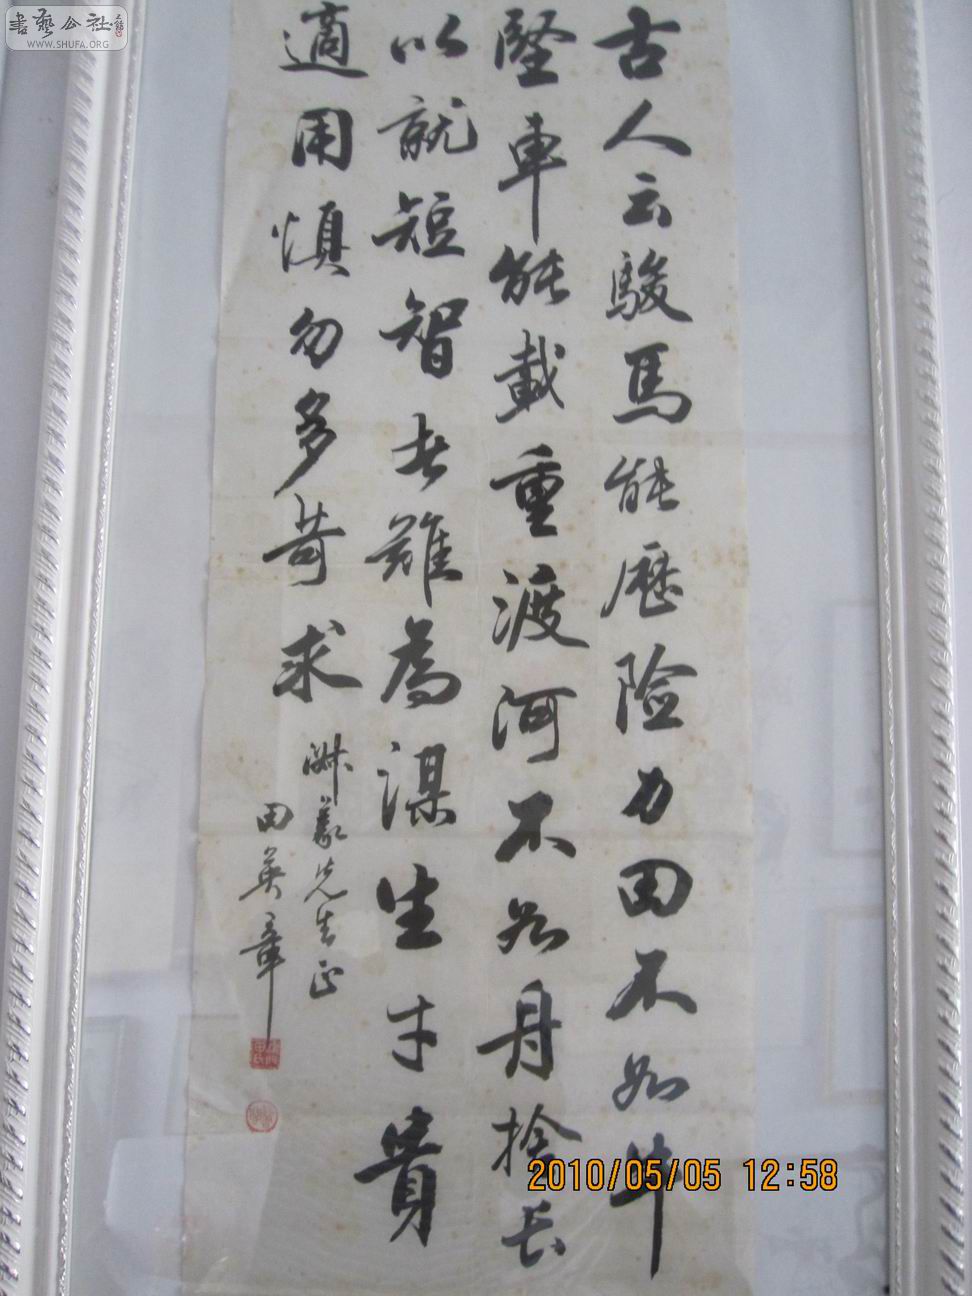 古人云駿馬能歷險力田不如牛
堅車能載重渡河不如舟捨長
以就短智者難為謀生才貴
適用慎勿多苛求
淋義先生正
田英章
書藝公社
WWW.SHUFA.ORG
2010/05/05 12:58